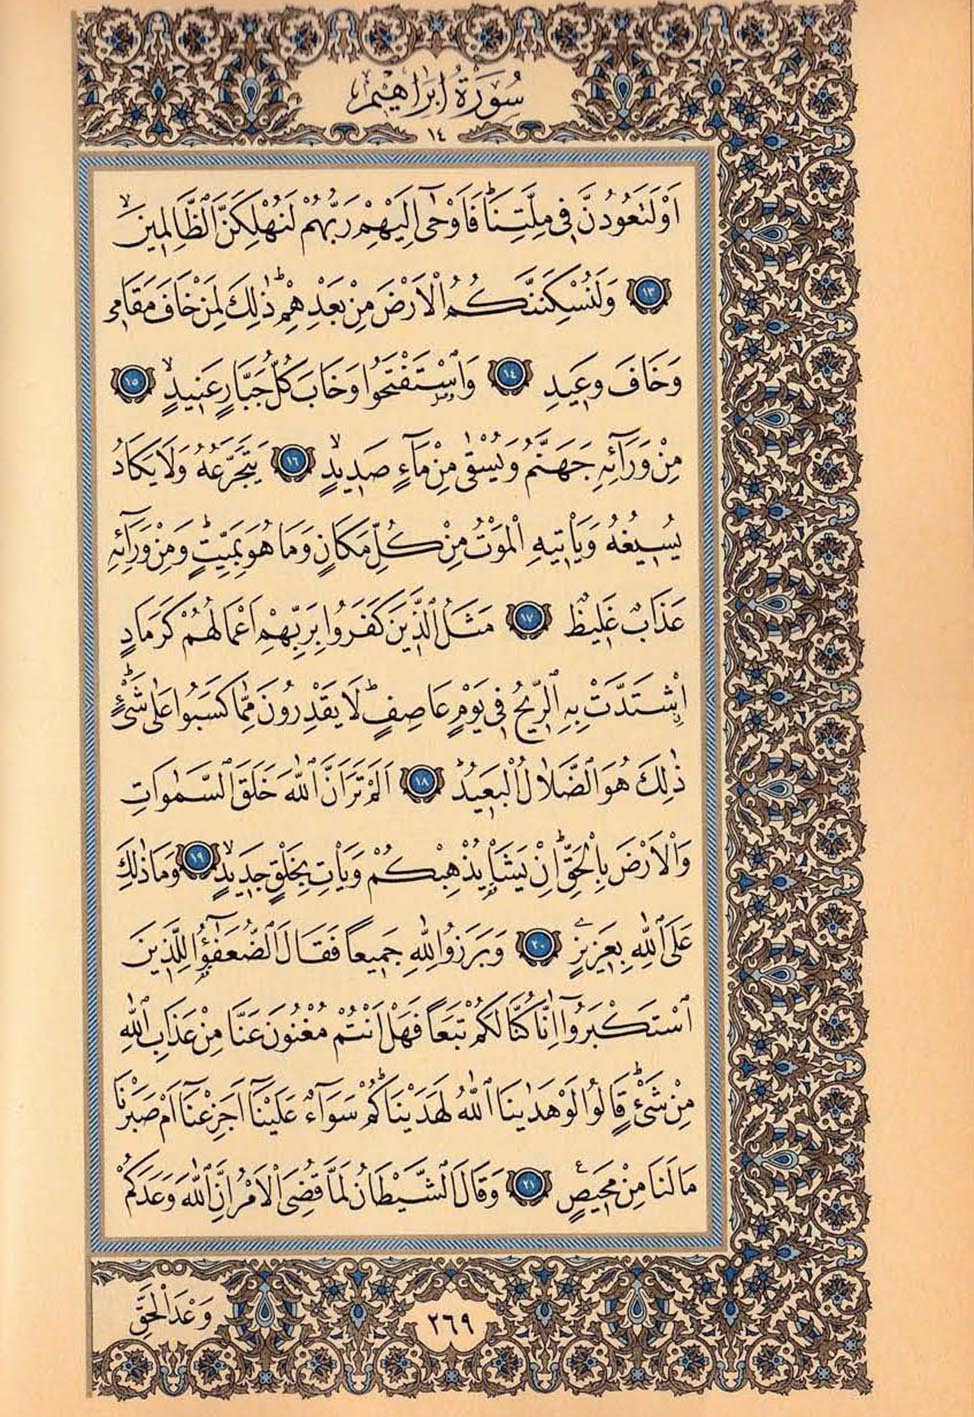 سُورَةُ اِبْرٰاهٖيمَ
١٤
اَوْ لَتَعُودُنَّ فٖي مِلَّتِنَاؕ فَاَوْحٰٓى اِلَيْهِمْ رَبُّهُمْ لَنُهْلِكَنَّ الظَّالِمٖينَۙ
﴿١٣﴾ وَلَنُسْكِنَنَّكُمُ الْاَرْضَ مِنْ بَعْدِهِمْؕ ذٰلِكَ لِمَنْ خَافَ مَقَامٖي
وَخَافَ وَعٖيدِ ﴿١٤﴾ وَاسْتَفْتَحُوا وَخَابَ كُلُّ جَبَّارٍ عَنٖيدٍۙ ﴿١٥﴾
مِنْ وَرَٓائِهٖ جَهَنَّمُ وَيُسْقٰى مِنْ مَٓاءٍ صَدٖيدٍۙ ﴿١٦﴾ يَتَجَرَّعُهُ وَلَا يَكَادُ
يُسٖيغُهُ وَيَاْتٖيهِ الْمَوْتُ مِنْ كُلِّ مَكَانٍ وَمَا هُوَ بِمَيِّتٍؕ وَمِنْ وَرَٓائِهٖ
عَذَابٌ غَلٖيظٌ ﴿١٧﴾ مَثَلُ الَّذٖينَ كَفَرُوا بِرَبِّهِمْ اَعْمَالُهُمْ كَرَمَادٍ
اِشْتَدَّتْ بِهِ الرّٖيحُ فٖي يَوْمٍ عَاصِفٍؕ لَا يَقْدِرُونَ مِمَّا كَسَبُوا عَلٰى شَيْءٍؕ
ذٰلِكَ هُوَ الضَّلَالُ الْبَعٖيدُ ﴿١٨﴾ اَلَمْ تَرَ اَنَّ اللّٰهَ خَلَقَ السَّمٰوَاتِ
وَالْاَرْضَ بِالْحَقِّؕ اِنْ يَشَاْ يُذْهِبْكُمْ وَيَاْتِ بِخَلْقٍ جَدٖيدٍۙ ﴿١٩﴾ وَمَا ذٰلِكَ
عَلَى اللّٰهِ بِعَزٖيزٍ ﴿٢٠﴾ وَبَرَزُوا لِلّٰهِ جَمٖيعاً فَقَالَ الضُّعَفٰٓؤُا لِلَّذٖينَ
اسْتَكْبَرُٓوا اِنَّا كُنَّا لَكُمْ تَبَعاً فَهَلْ اَنْتُمْ مُغْنُونَ عَنَّا مِنْ عَذَابِ اللّٰهِ
مِنْ شَيْءٍؕ قَالُوا لَوْ هَدٰينَا اللّٰهُ لَهَدَيْنَاكُمْؕ سَوَٓاءٌ عَلَيْنَٓا اَجَزِعْنَٓا اَمْ صَبَرْنَا
مَا لَنَا مِنْ مَحٖيصٍ ﴿٢١﴾ وَقَالَ الشَّيْطَانُ لَمَّا قُضِيَ الْاَمْرُ اِنَّ اللّٰهَ وَعَدَكُمْ
وَعْدَ الْحَقِّ
٢٦٩